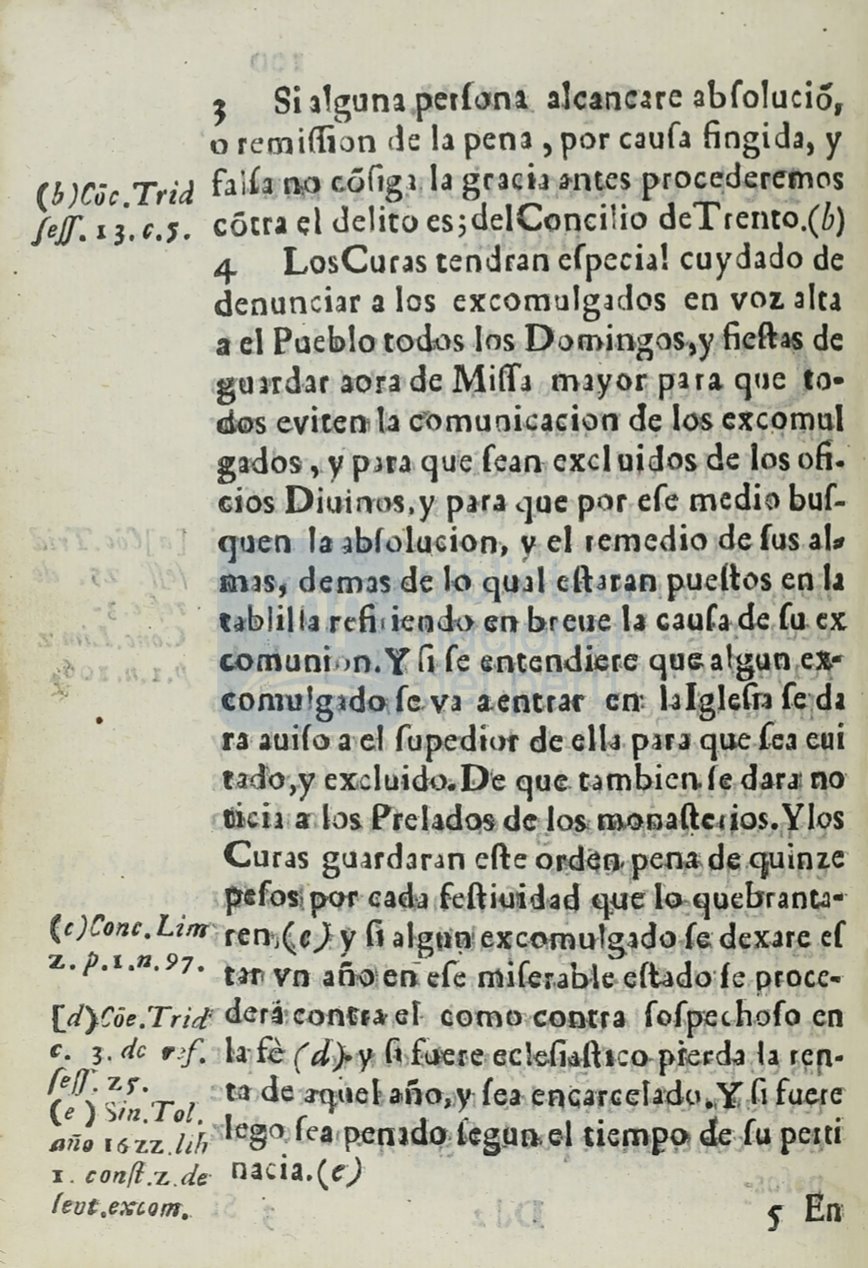 3 Si alguna perſona alcancare abſolució,
o remiſſion de la pena, por cauſa fingida, y
falſa no cōſiga la gracia antes procederemos
cōtra el delito es; delConcilio deTrento.(b)
(b)Cōc.Trid
ſeſſ. 13. c. 5.
4 LosCuras tendran eſpecial cuydado de
denunciar a los excomulgados en voz alta
a el Pueblo todos los Domingos, y fieſtas de
guardar aora de Miſſa mayor para que to-
dos eviten la comunicacion de los excomul
gados, y para que ſean excluidos de los ofi-
cios Diuinos, y para que por eſe medio buſ-
quen la abſolucion, y el remedio de ſus al-
mas, demas de lo qual eſtaran pueſtos en la
tablilla refiriendo en breue la cauſa de ſu ex
comunion. Y ſi ſe entendiere que algun ex-
comulgado ſe va a entrar en laIgleſia ſe da
ra auiſo a el ſupedior de ella para que ſea eui
tado, y excluido. De que tambien ſe dara no
ticia a los Prelados de los monaſterios. Ylos
Curas guardaran eſte orden pena de quinze
peſos por cada feſtiuidad que lo quebranta-
ren,(c) y ſi algun excomulgado ſe dexare eſ
tar vn año en eſe miſerable eſtado ſe proce-
derá contra el como contra ſoſpechoſo en
la fè (d) y ſi fuere ecleſiaſtico pierda la ren-
ta de aquel año, y ſea encarcelado. Y ſi fuere
lego ſea penado ſegun el tiempo de ſu perti
nacia.(e)
(c)Conc.Lim
2. p. 1. n. 97.
[d)Cōe.Trid
c. 3. de ref.
ſeſſ. 25.
(e) Sin. Tol.
año 1622. lib
1. conſt. 2. de
ſent. excom.
5 En